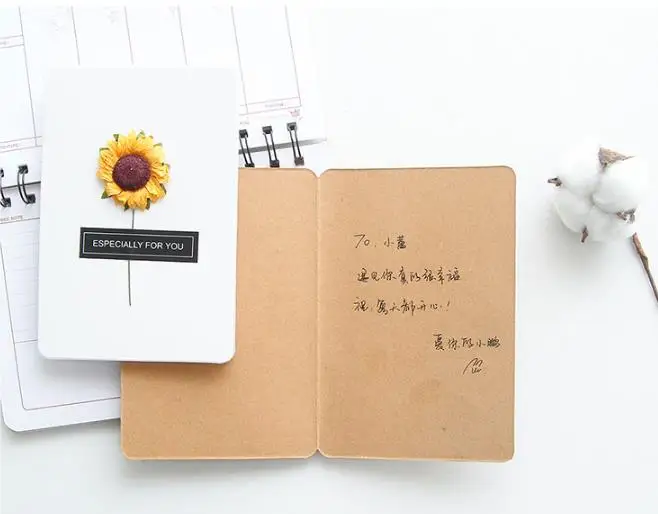 ESPECIALLY FOR YOU
TO: 小蕾
遇见你真的很幸福
祝:每天都开心!
爱你的小鹏